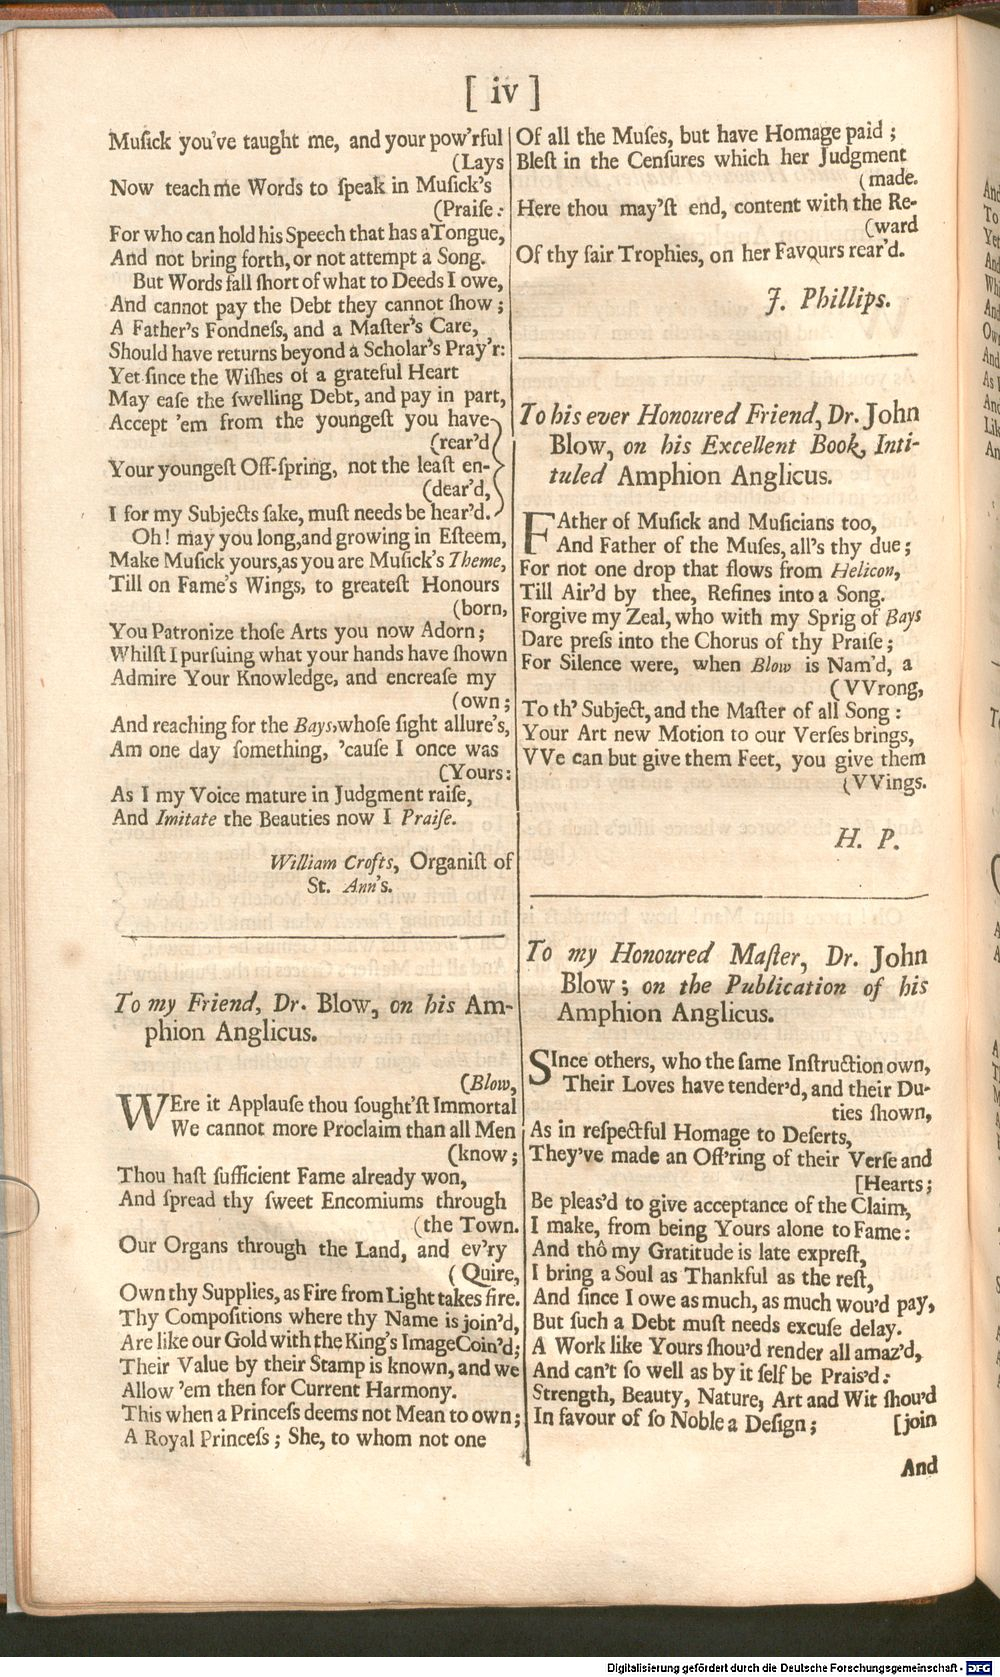 [ iv ]
Muſick you've taught me, and your pow'rful
(Lays
Now teach me Words to ſpeak in Muſick's
(Praiſe:
For who can hold his Speech that has a Tongue,
And not bring forth, or not attempt a Song.
But Words fall ſhort of what to Deeds I owe,
And cannot pay the Debt they cannot ſhow;
A Father's Fondneſs, and a Maſter's Care,
Should have returns beyond a Scholar's Pray'r:
Yet ſince the Wiſhes of a grateful Heart
May eaſe the ſwelling Debt, and pay in part,
Accept 'em from the youngeſt you have
(rear'd
Your youngeſt Off-ſpring, not the leaſt en-
(dear'd,
I for my Subjects ſake, muſt needs be hear'd.
Oh! may you long, and growing in Eſteem,
Make Muſick yours, as you are Muſick's Theme,
Till on Fame's Wings, to greateſt Honours
(born,
You Patronize thoſe Arts you now Adorn;
Whilſt I purſuing what your hands have ſhown
Admire Your Knowledge, and encreaſe my
(own;
And reaching for the Bays, whoſe ſight allure's,
Am one day ſomething, 'cauſe I once was
(Yours:
As I my Voice mature in Judgment raiſe,
And Imitate the Beauties now I Praiſe.
William Crofts, Organiſt of
St. Ann's.
To my Friend, Dr. Blow, on his Am-
phion Anglicus.
(Blow,
WEre it Applauſe thou ſought'ſt Immortal
We cannot more Proclaim than all Men
(know;
Thou haſt ſufficient Fame already won,
And ſpread thy ſweet Encomiums through
(the Town.
Our Organs through the Land, and ev'ry
(Quire,
Own thy Supplies, as Fire from Light takes fire.
Thy Compoſitions where thy Name is join'd,
Are like our Gold with the King's Image Coin'd;
Their Value by their Stamp is known, and we
Allow 'em then for Current Harmony.
This when a Princeſs deems not Mean to own;
A Royal Princeſs; She, to whom not one
Of all the Muſes, but have Homage paid;
Bleſt in the Cenſures which her Judgment
(made.
Here thou may'ſt end, content with the Re-
(ward
Of thy fair Trophies, on her Favours rear'd.
J. Phillips.
To his ever Honoured Friend, Dr. John
Blow, on his Excellent Book, Inti-
tuled Amphion Anglicus.
FAther of Muſick and Muſicians too,
And Father of the Muſes, all's thy due;
For not one drop that flows from Helicon,
Till Air'd by thee, Refines into a Song.
Forgive my Zeal, who with my Sprig of Bays
Dare preſs into the Chorus of thy Praiſe;
For Silence were, when Blow is Nam'd, a
(VVrong,
To th' Subject, and the Maſter of all Song:
Your Art new Motion to our Verſes brings,
VVe can but give them Feet, you give them
(VVings.
H. P.
To my Honoured Maſter, Dr. John
Blow; on the Publication of his
Amphion Anglicus.
SInce others, who the ſame Inſtruction own,
Their Loves have tender'd, and their Du-
ties ſhown,
As in reſpectful Homage to Deſerts,
They've made an Off'ring of their Verſe and
[Hearts;
Be pleas'd to give acceptance of the Claim,
I make, from being Yours alone to Fame:
And thô my Gratitude is late expreſt,
I bring a Soul as Thankful as the reſt,
And ſince I owe as much, as much wou'd pay,
But ſuch a Debt muſt needs excuſe delay.
A Work like Yours ſhou'd render all amaz'd,
And can't ſo well as by it ſelf be Prais'd:
Strength, Beauty, Nature, Art and Wit ſhou'd
In favour of ſo Noble a Deſign; [join
And
Digitalisierung gefördert durch die Deutsche Forschungsgemeinschaft - DFG